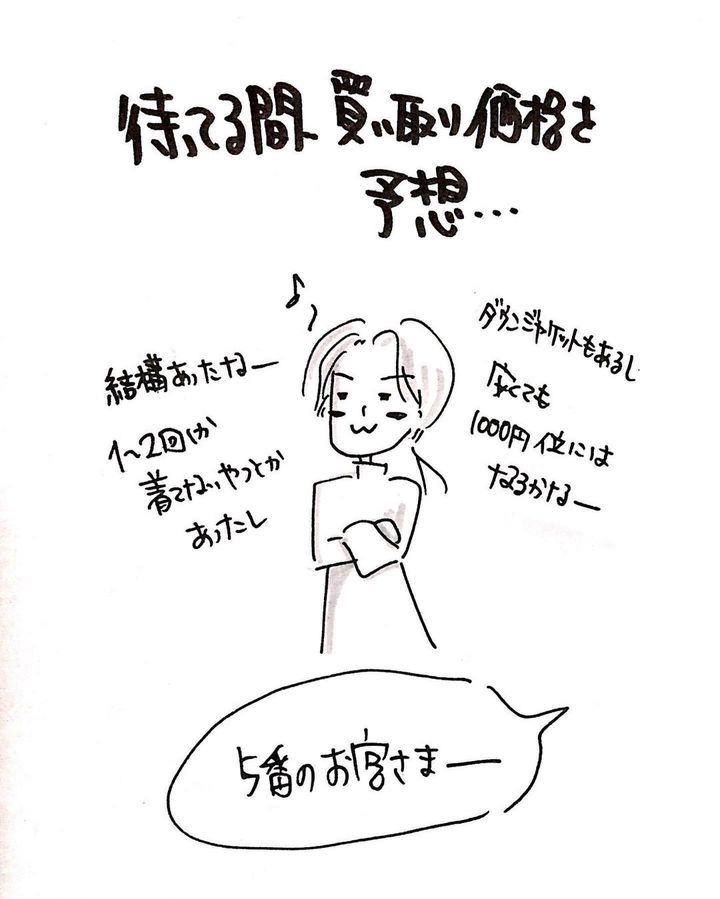 待ってる間、買い取り価格を
予想…
結構あったなー
1〜2回しか
着てないやつとか
あったし
ダウンジャケットもあるし
安くても
1000円位には
なるかなー
5番のお客さまー